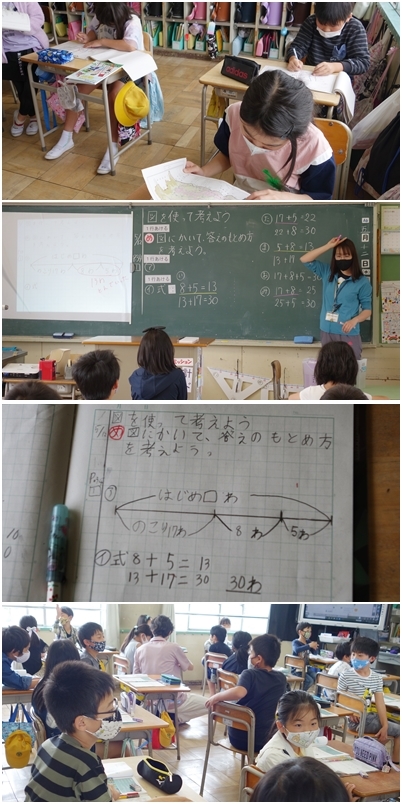 adidas
図を使って考えよう
1行あける
め 図にかいて、答えのもとめ方
を考えよう。
1行あける
1行あける
式 8+5=13
13+17=30
17+5=22
22+8=30
5+8=13
13+17
17+8+5=30
17+8=25
25+5=30
月
日
図を使って考えよう
5/12 め 図にかいて、答えのもとめ方
を考えよう。
P64
1 ㋐
はじめ□わ
のこり17わ 8わ 5わ
㋑式 8+5=13
13+17=30 30わ